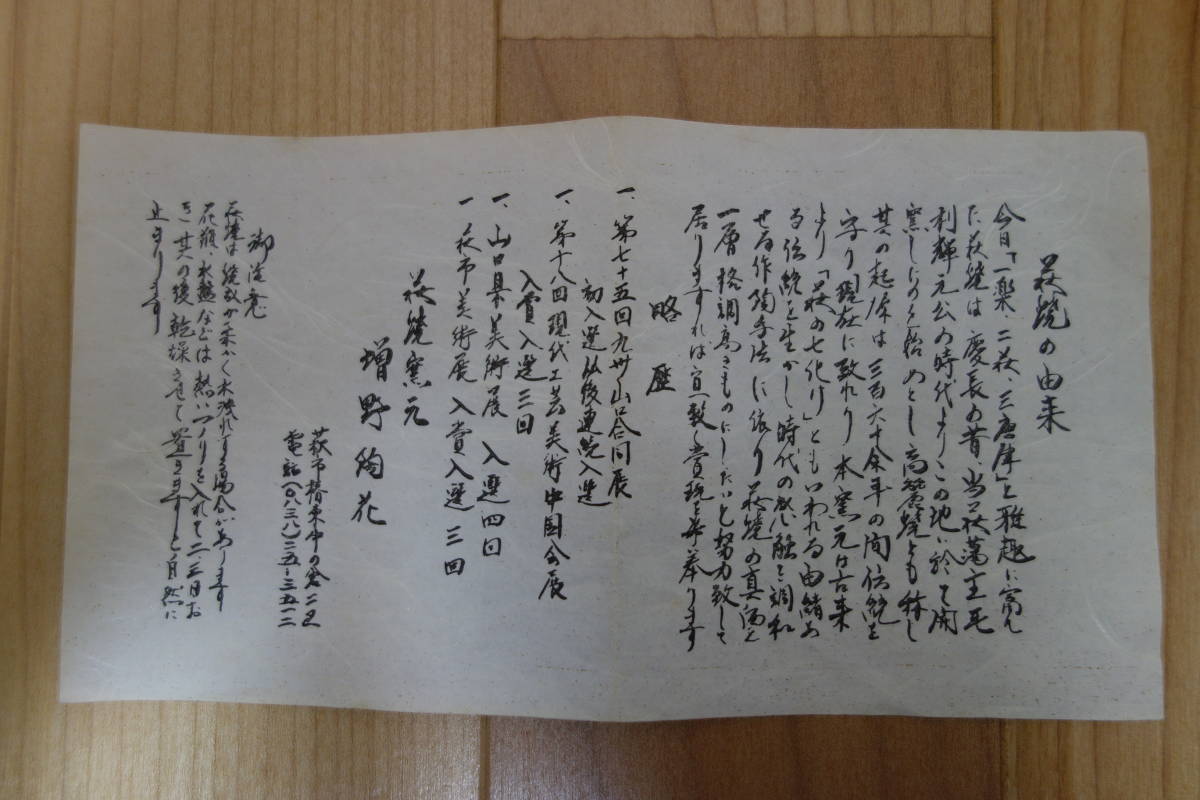 萩焼の由来
今日「一楽、二萩、三唐津」と雅趣に富ん
だ萩焼は慶長の昔当萩藩主毛
利輝元公の時代よりこの地に於て開
窯しものを始めとし高麗焼とも称し
其の起原は三百六十余年の間伝統を
守り現在に致れり本窯元は古来
より「萩の七化け」ともいわれる由緒あ
る伝統を生かし時代の感触と調和
せる作陶手法に依り萩焼の真価を
一層格調高きものにしたいと努力致して
居りますれば宜敷く賞玩を奉ります
略歴
一、第七十五回九州山口合同展
初入選以後連続入選
一、第十八回現代工芸美術中国会展
入賞入選三回
一、山口県美術展入選四回
一萩市美術展入賞入選三回
萩焼窯元
増野陶花
萩市椿東中の倉二区
電話(〇八三八)二五-三五一二
御注意
萩焼は焼が柔かく水洩れする場合があります
花瓶、水盤などは熱いのりを入れて二、三日お
き其の後乾燥させて置きますと自然に
止まります